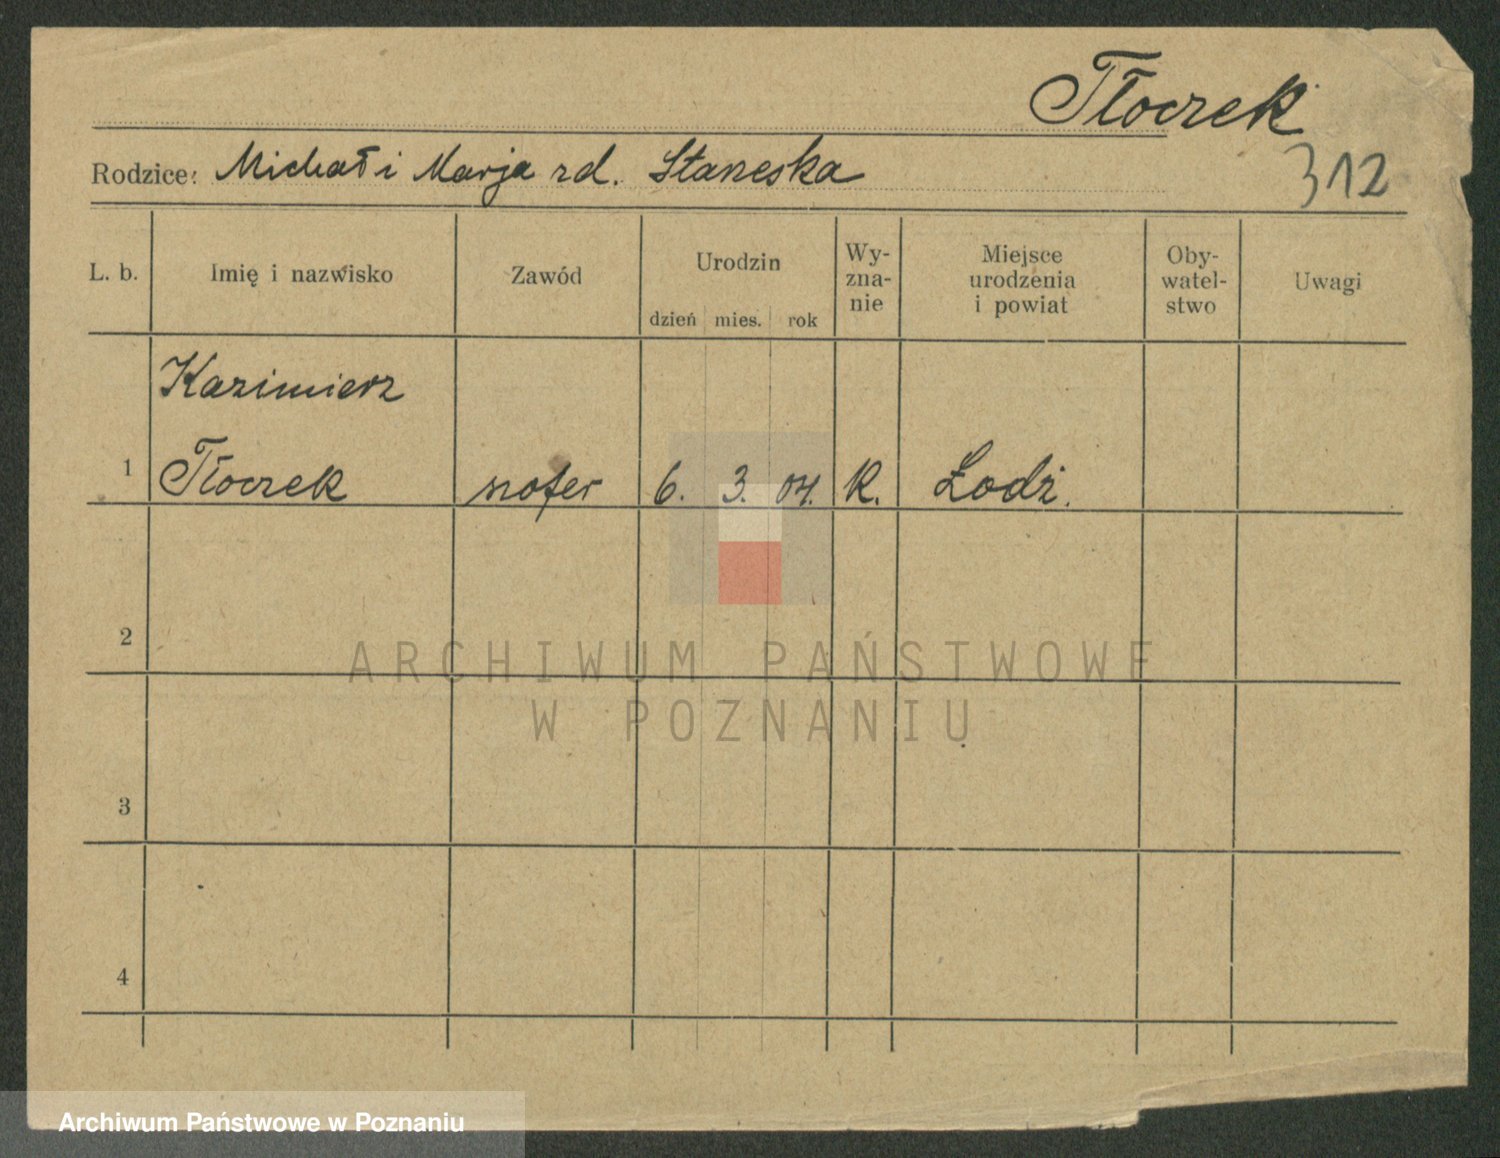 Tłoczek
Rodzice: Michał i Marja rd. Staneska
312
L. b. Imię i nazwisko Zawód Urodzin dzień mies. rok Wy-zna-nie Miejsce urodzenia i powiat Oby-watel-stwo Uwagi
Kazimierz
1 Tłoczek szofer 6. 3. 04. K. Łodź.
2
ARCHIWUM PAŃSTWOWE
W POZNANIU
3
4
Archiwum Państwowe w Poznaniu